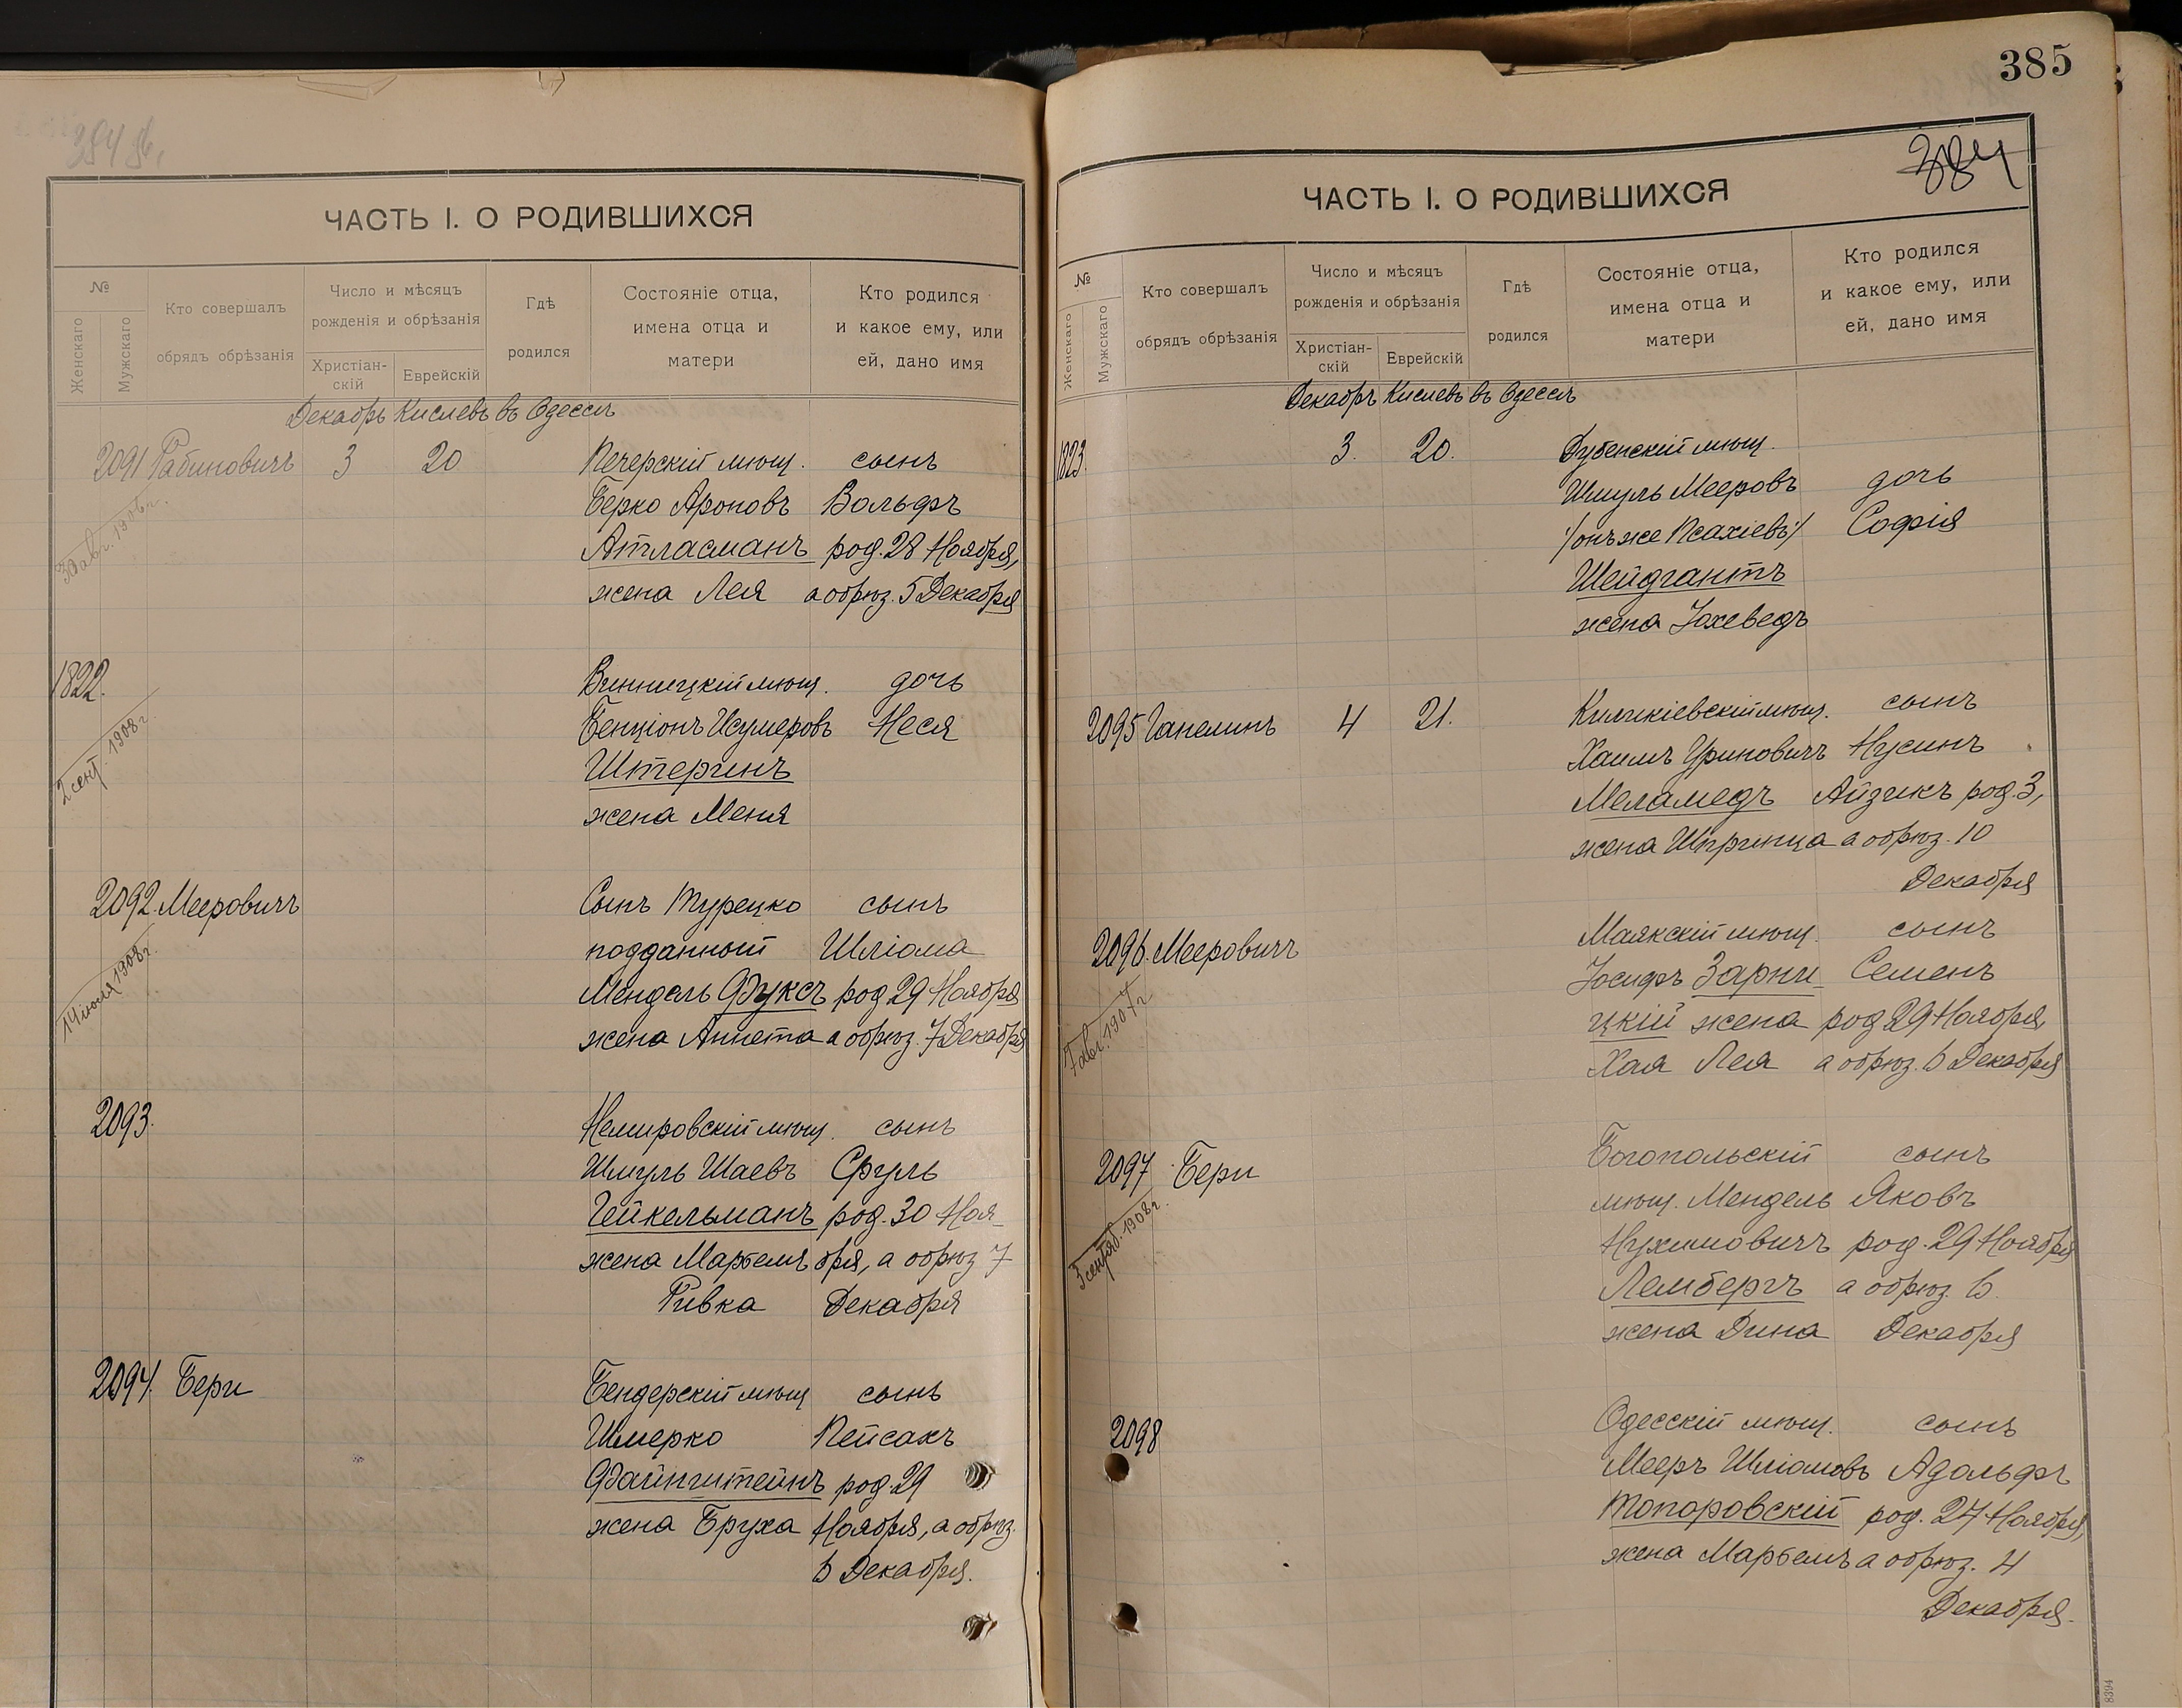 385
384
ЧАСТЬ I. О РОДИВШИХСЯ
№
Женскаго
Мужскаго
Кто совершалъ
обрядъ обрѣзанія
Число и мѣсяцъ
рожденія и обрѣзанія
Христіан-
скій
Еврейскій
Гдѣ
родился
Состояніе отца,
имена отца и
матери
Кто родился
и какое ему, или
ей, дано имя
Декабрь Кислевъ въ Одессѣ
2091 Рабиновичъ 3 20 Печерскій мѣщ. сынъ
Берко Ароновъ Вольфъ
Атласманъ род. 28 Ноября,
жена Лея а обрѣз. 5 Декабря
1822. Винницкій мѣщ. дочь
2 сент. 1908 г.
Бенціонъ Неся
Штеринъ
жена Меня
2092. Мееровичъ Сынъ Турецко сынъ
14 іюля 1908 г.
подданный Шліома
Мендель Фуксъ род. 29 Ноября
жена Аннета а обрѣз. 7 Декабря
2093. Немировскій мѣщ. сынъ
Шмуль Шаевъ Сруль
Гейкельманъ род. 30 Ноя-
жена Марьемъ бря, а обрѣз 7
Ривка Декабря
2094. Бери Бендерскій мѣщ сынъ
Шмерко Пейсахъ
Файнштейнъ род. 29
жена Бруха Ноября, а обрѣз.
6 Декабря.
ЧАСТЬ I. О РОДИВШИХСЯ
№
Женскаго
Мужскаго
Кто совершалъ
обрядъ обрѣзанія
Число и мѣсяцъ
рожденія и обрѣзанія
Христіан-
скій
Еврейскій
Гдѣ
родился
Состояніе отца,
имена отца и
матери
Кто родился
и какое ему, или
ей, дано имя
Декабрь Кислевъ въ Одессѣ
1823. 3. 20. Дубенскій мѣщ.
Шмуль Мееровъ дочь
/онъ же Псахіевъ/ Софія
Шейдгантъ
жена Іохеведъ
2095 Ганелинъ 4 21. Киликіевскій мѣщ. сынъ
Хаимъ Уриновичъ Нусинъ
Меламедъ Айзикъ род. 3,
жена Шпринца а обрѣз. 10
Декабря
2096. Мееровичъ Маякскій мѣщ. сынъ
7 авг. 1907 г
Іосифъ Зарни- Семенъ
цкій жена род 29 Ноября,
Хая Лея а обрѣз. 6 Декабря
2097 Бери Богопольскій сынъ
3 сентяб. 1908 г.
мѣщ. Мендель Яковъ
Нухимовичъ род. 29 Ноября
Лембергъ а обрѣз. 6.
жена Дина Декабря
2098 Одесскій мѣщ. сынъ
Мееръ Шліомовъ Адольфъ
Топоровскій род. 27 Ноября,
жена Марьемъ а обрѣз. 4
Декабря.
8394